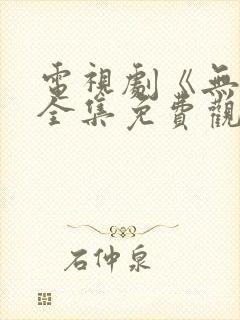 電視劇《無
全集免費觀
石仲泉